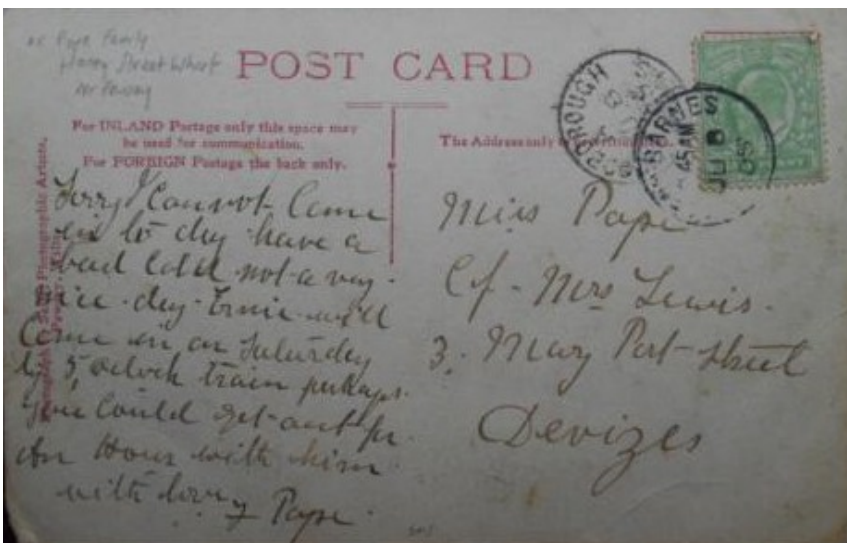 Pope Family
Honey Street Wharf
nr Pewsey
POST CARD
For INLAND Postage only this space may
be used for communication.
For FOREIGN Postage the back only.
The Address only
BARNES
45 AM
JU 8
05
Sorry I Cannot Come
in to day have a
bad Cold not a very
nice day Ernie will
Come in on Saturday
by 5 oclock train perhaps
you Could get out for
An Hour with him
with love
Pope
Miss Pope
C/- Mrs Lewis.
3. Mary Port Street
Devizes
Photographic Artists,